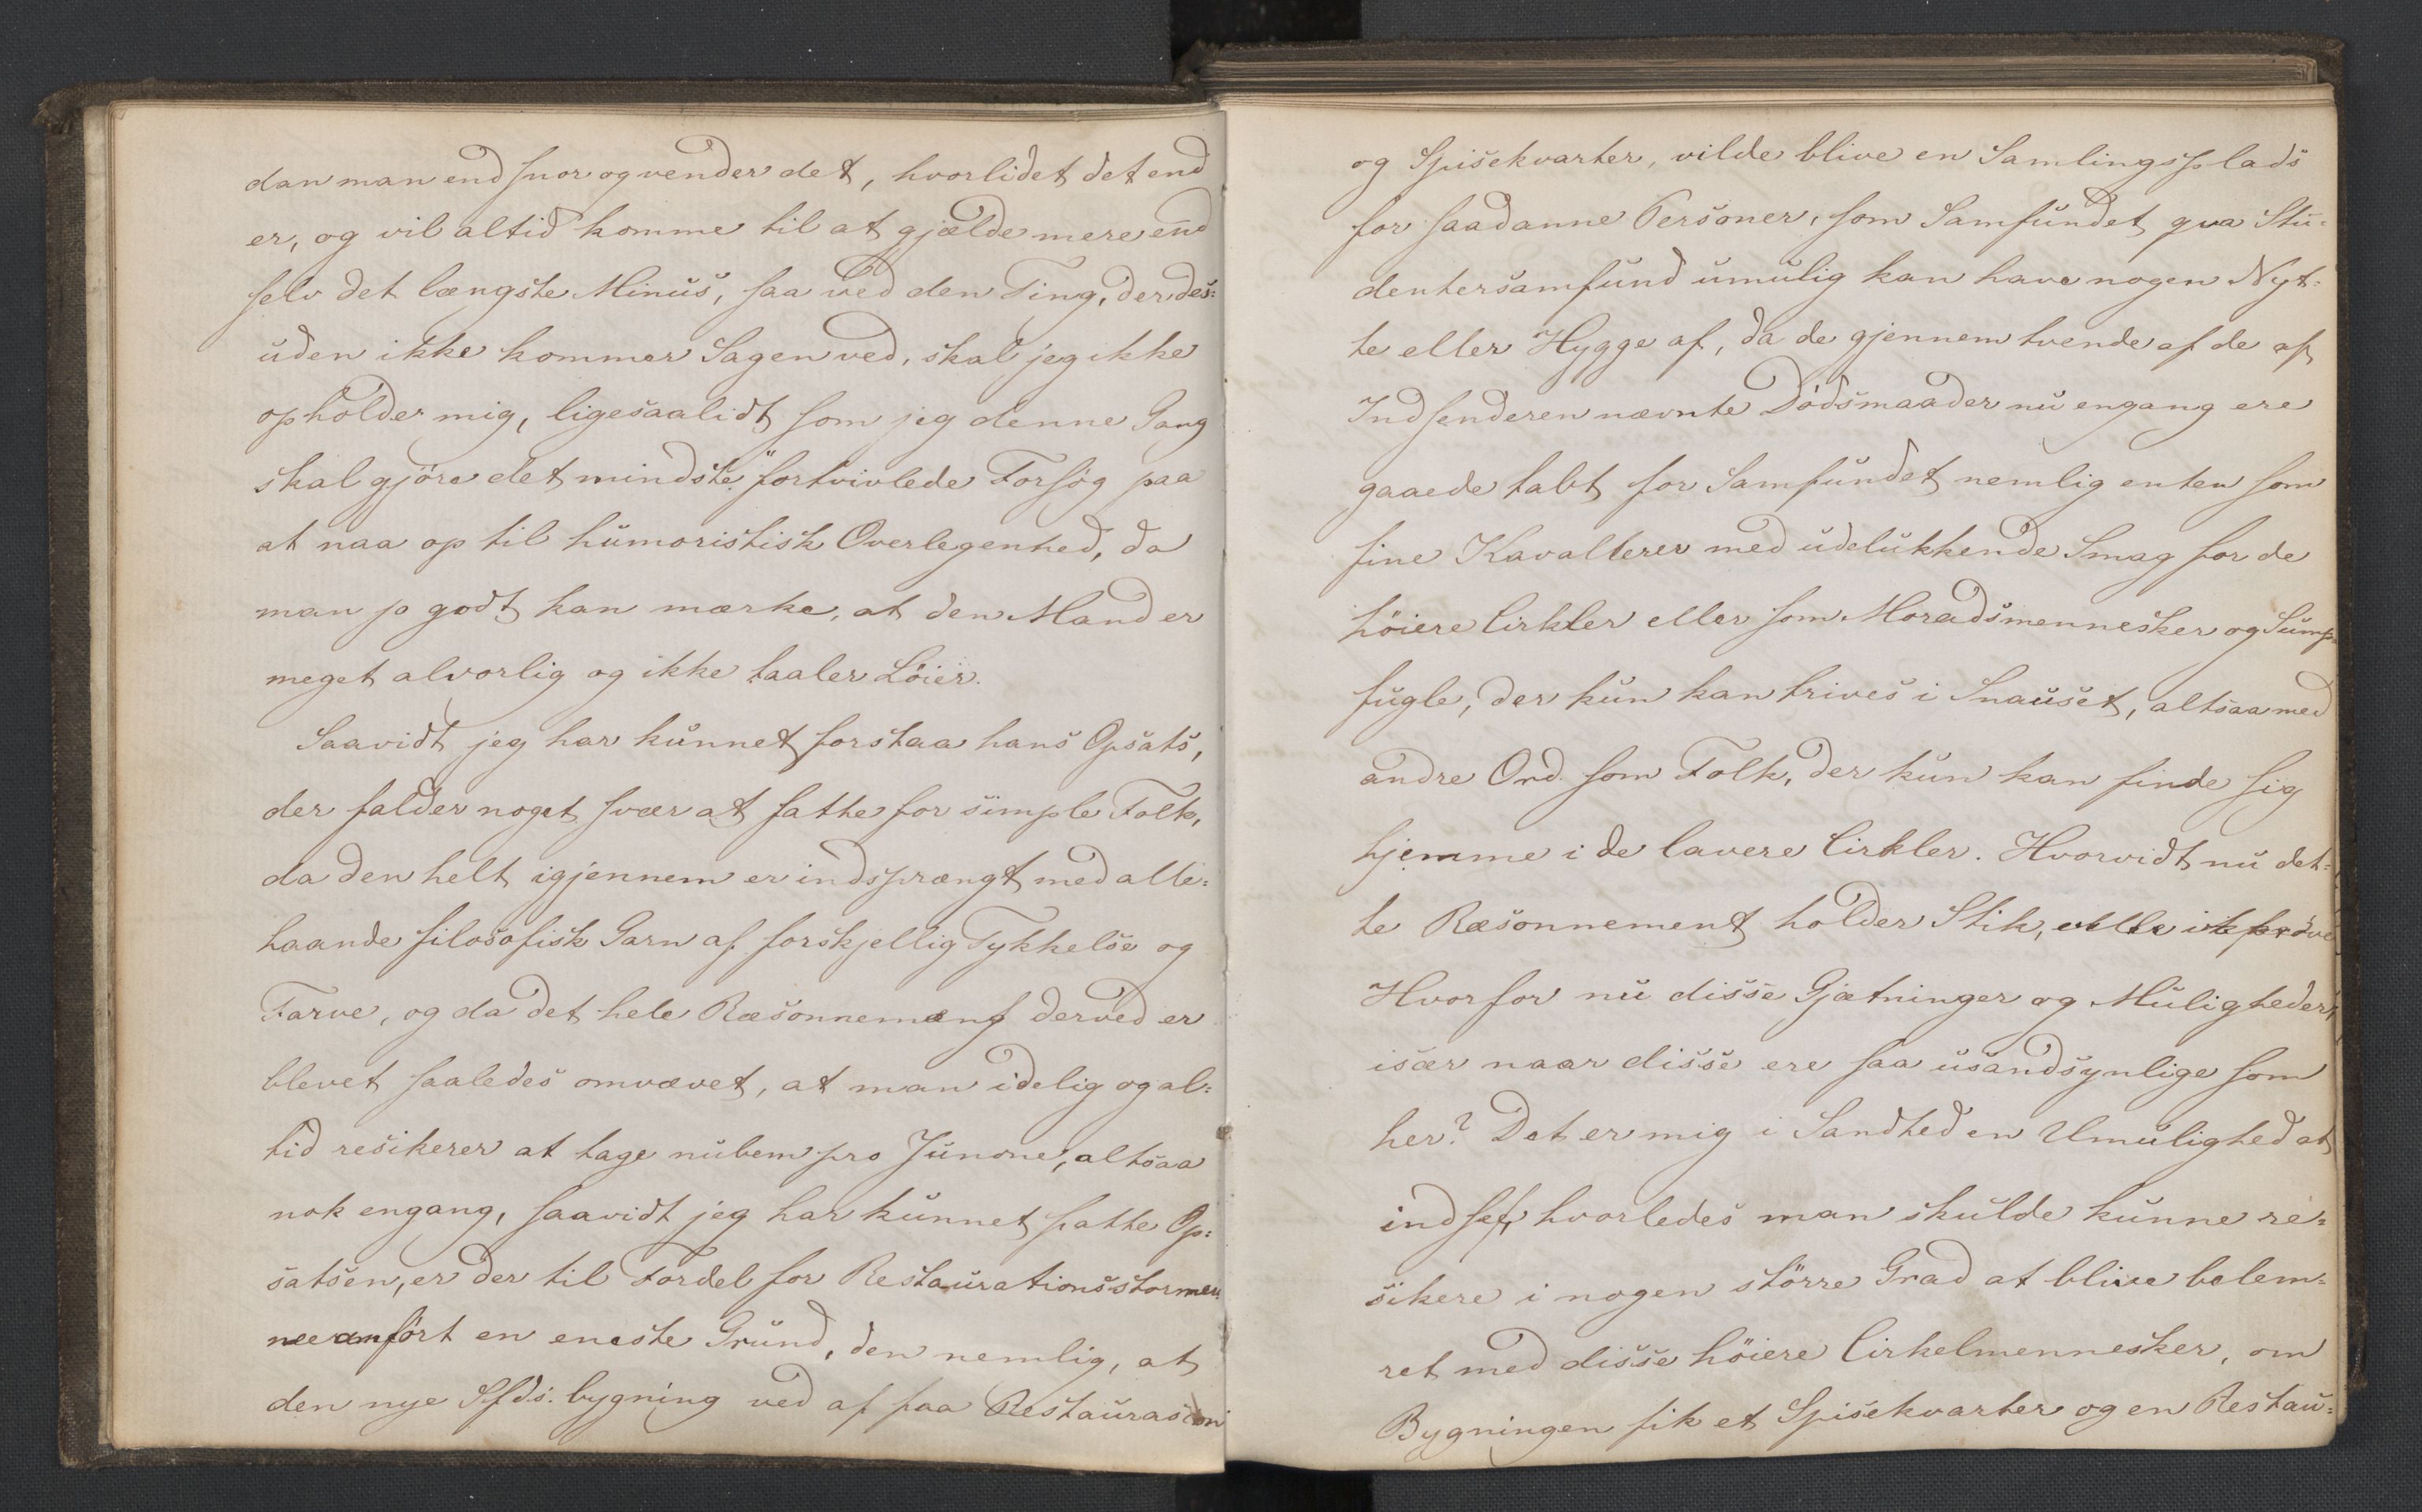 dan man end snor og vender det, hvorlidet det end
er, og vil altid komme til at gjælde mere end
selv det længste Minus, saa ved den Ting, der des=
uden ikke kommer Sagen ved, skal jeg ikke
opholder mig, ligesaalidt som jeg denne Gang
skal gjöre det mindste "fortvivlede Forsög paa
at naa op til humoristisk Overlegenhed, da
man jo godt kan mærke, at den Mand er
meget alvorlig og ikke taaler Löier.
Saavidt jeg har kunnet forstaa hans Opsats,
der falder noget svær at fatte for simple Folk,
da den helt igjennem er indsprængt med alle=
haande filosofisk Garn af forskjellig Tykkelse og
Farve, og da det hele Ræsonnement derved er
blevet saaledes omvævet, at man idelig og al=
tid resikerer at tage nubem pro Junone, altsaa
nok engang, saavidt jeg har kunnet fatte Op=
satsen, er der til Fordel for Restaurationsstormen
anfört en eneste Grund, den nemlig, at
den nye Sfds. bygning ved af faa Restaurasion
og Spisekvarter, vilde blive en Samlingsplads
for saadanne Personer, som Samfundet qva Stu=
dentersamfund umulig kan have nogen Nyt=
te eller Hygge af, da de gjennem tvende af de af
Indsenderen nævnte Dödsmaader nu engang ere
gaaede tabt for Samfundet nemlig enten som
fine Kavallerer med udelukkende Smag for de
höiere Cirkler eller som Moradsmennesker og Sump=
fugle, der kun kan trives i Snauset, altsaa med
andre Ord som Folk, der kun kan finde sig
hjemme i de lavere Cirkler. Hvorvidt nu det=
te Ræsonnement holder Stik,
Hvorfor nu disse Gjætninger og Muligheder,
især naar disse ere saa usandsynlige som
her? Det er mig i Sandhed en Umulighed at
hvorledes man skulde kunne re=
sikere i nogen större Grad at blive belem=
ret med disse höiere Cirkelmennesker, om
Bygningen fik et Spisekvarter og en Restau=